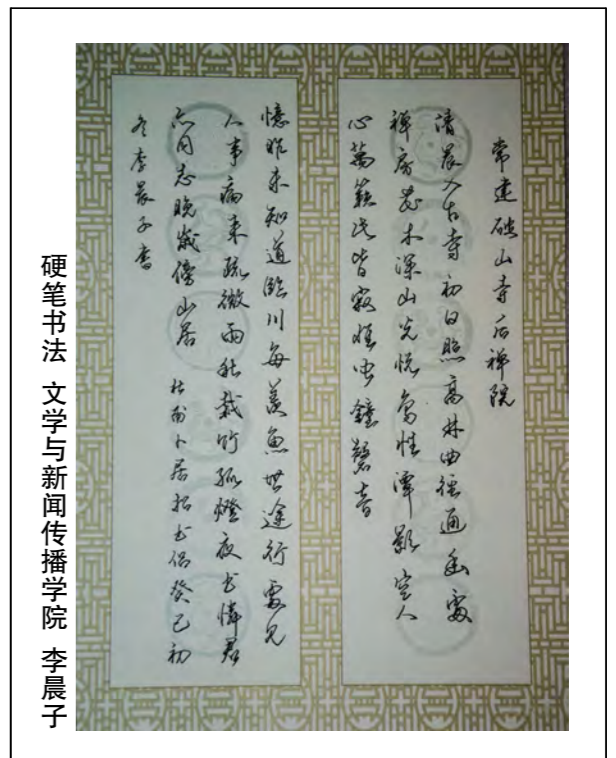 常建破山寺后禅院
清晨入古寺初日照高林曲徑通幽處
禅房花木深山光悦鳥性潭影空人
心萬籟此皆寂惟闻鐘磬音
憶昨未知道臨川每羡魚世途行處見
人事病来疏微雨秋栽竹孤燈夜书憐君
亦同志晚歲傍山居 杜卜居招书侣癸巳初
冬李晨子書
硬笔书法 文学与新闻传播学院 李晨子